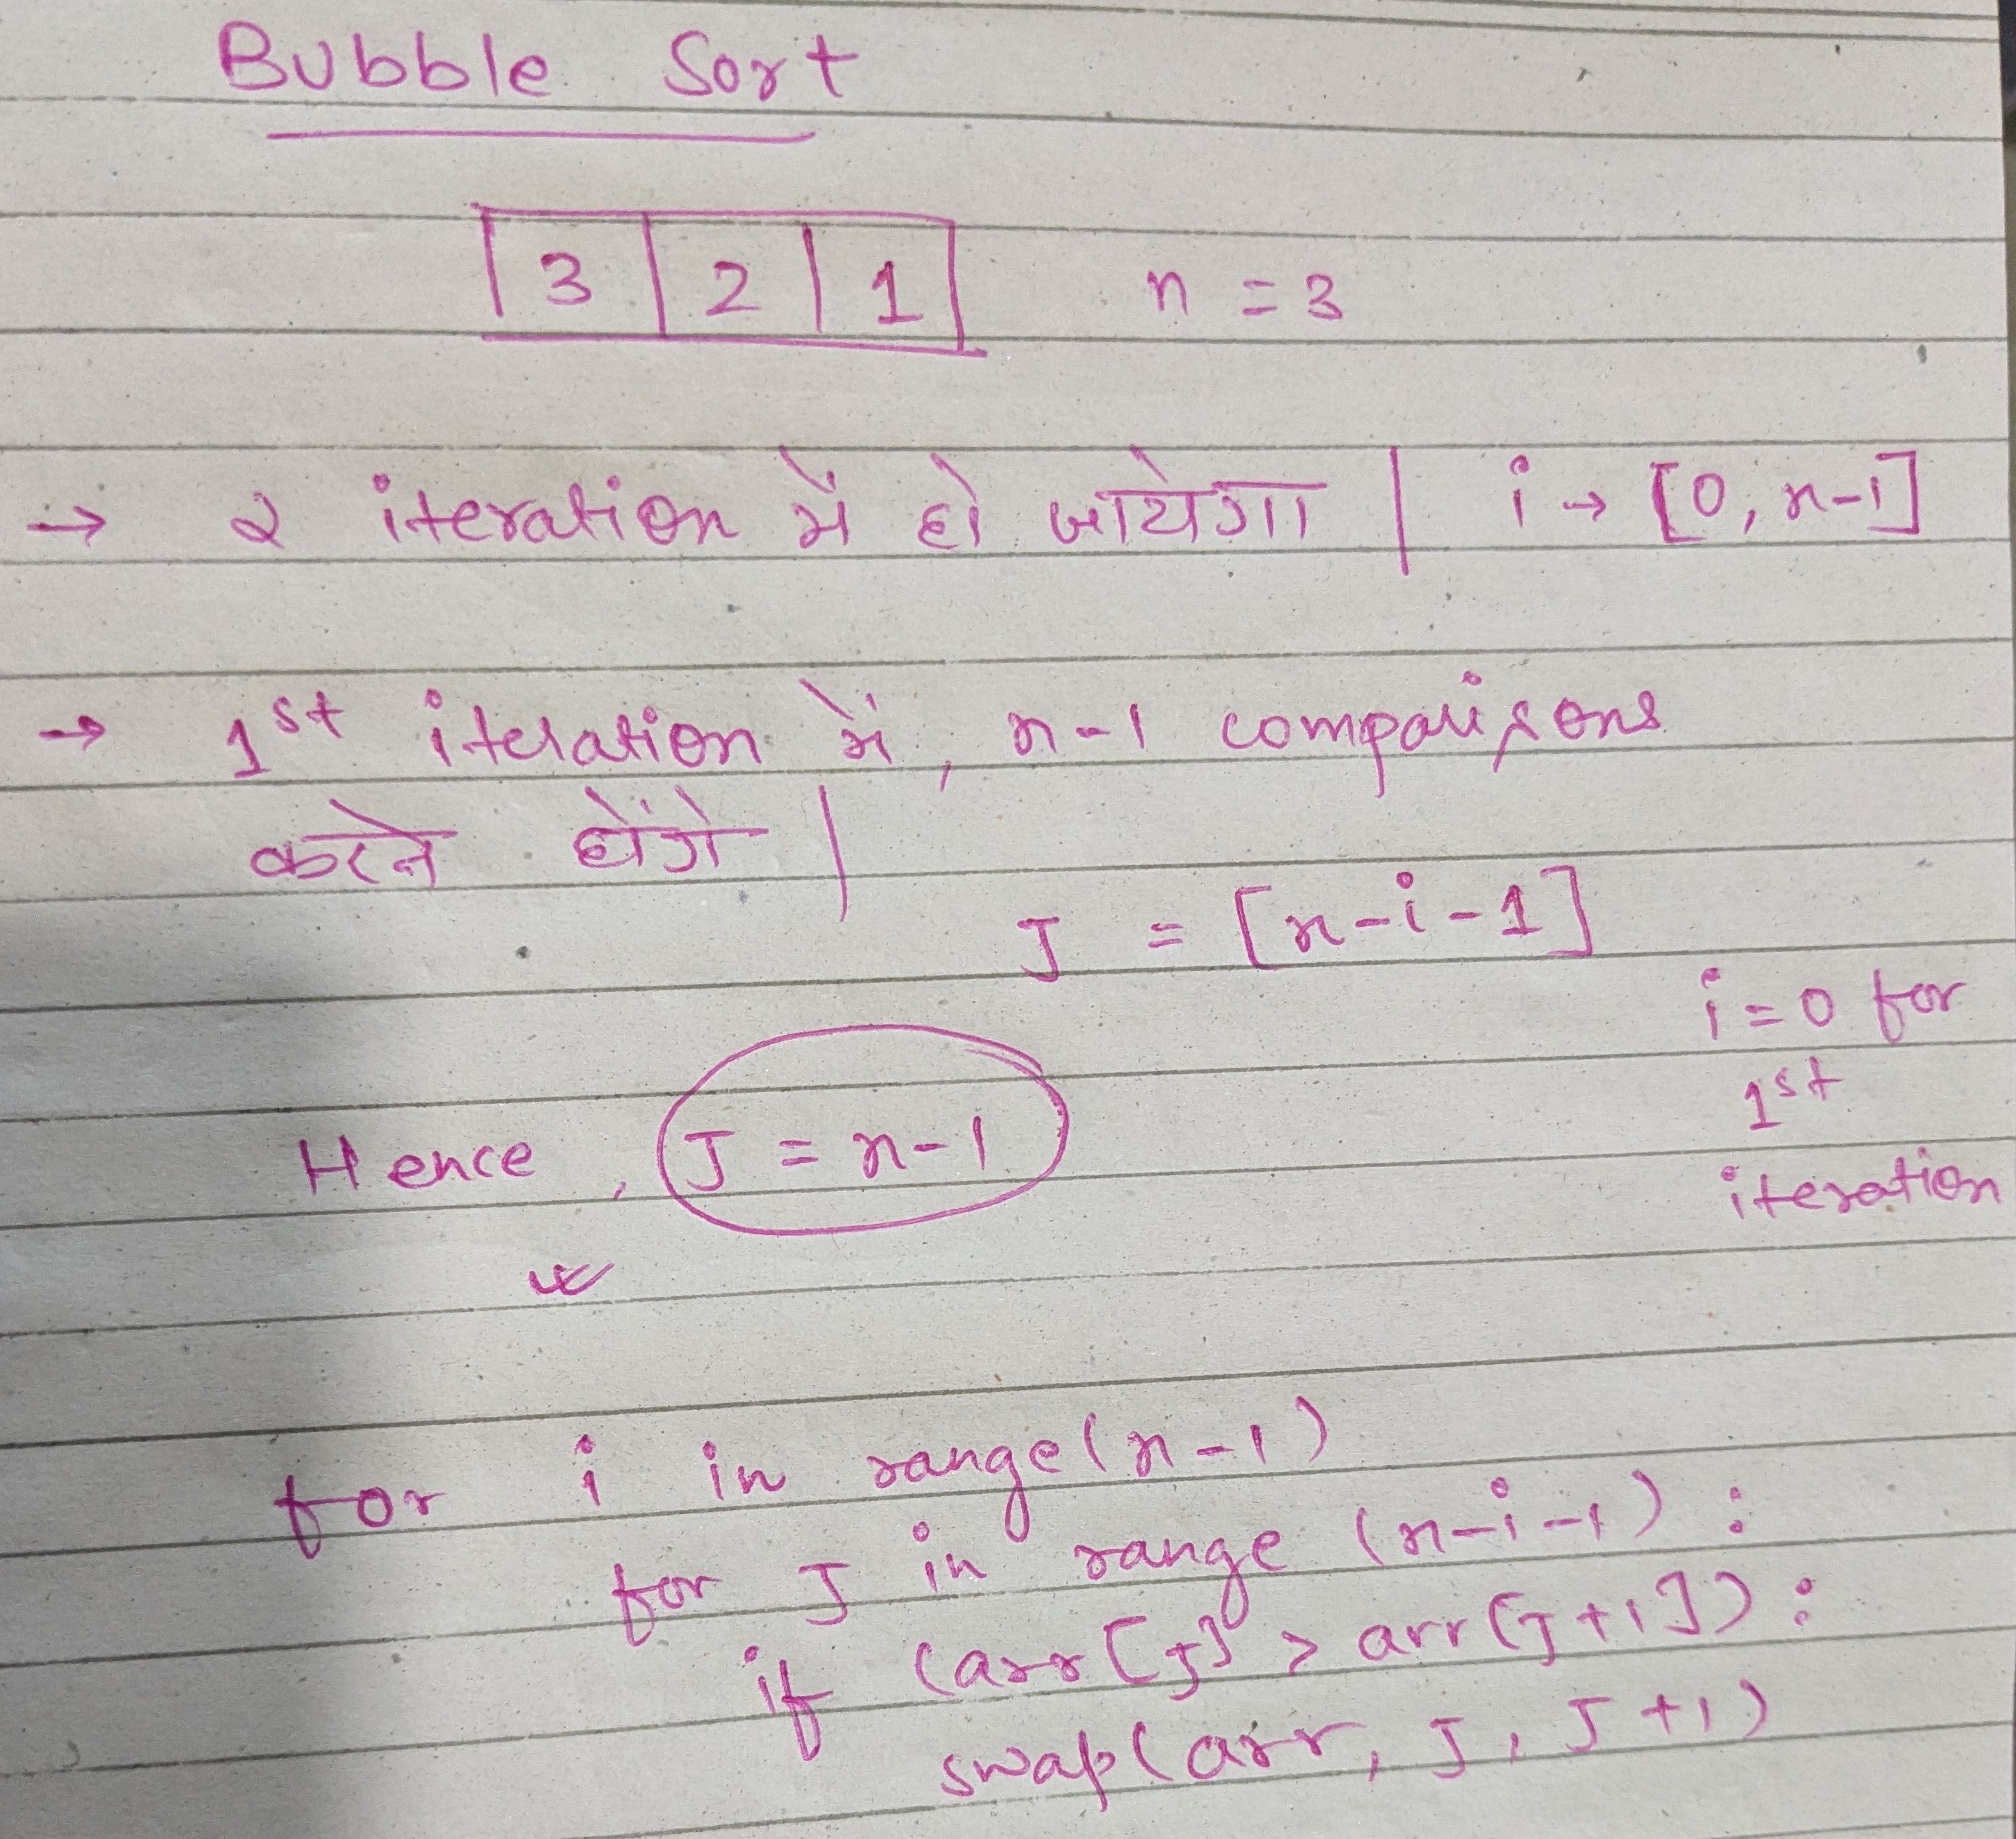 Bubble Sort
3 2 1 n = 3
→ 2 iteration में हो जायेगा | i → [0, n-1]
→ 1st iteration में, n-1 comparisons
करने होंगे |
J = [n-i-1]
i = 0 for
1st
iteration
Hence, J = n-1
for i in range(n-1)
for J in range (n-i-1) :
if (arr[J] > arr[J+1]) :
swap(arr, J, J+1)